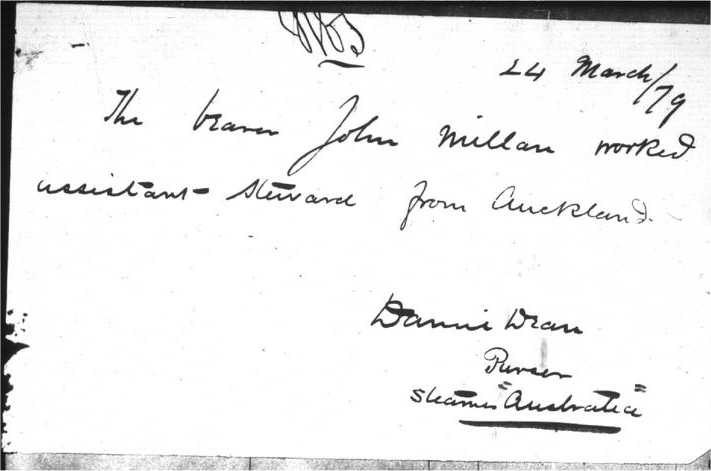 24 March/79
The bearer John Millan worked
assistant steward from Auckland.
Dean
Purser
Steamer "Australia"